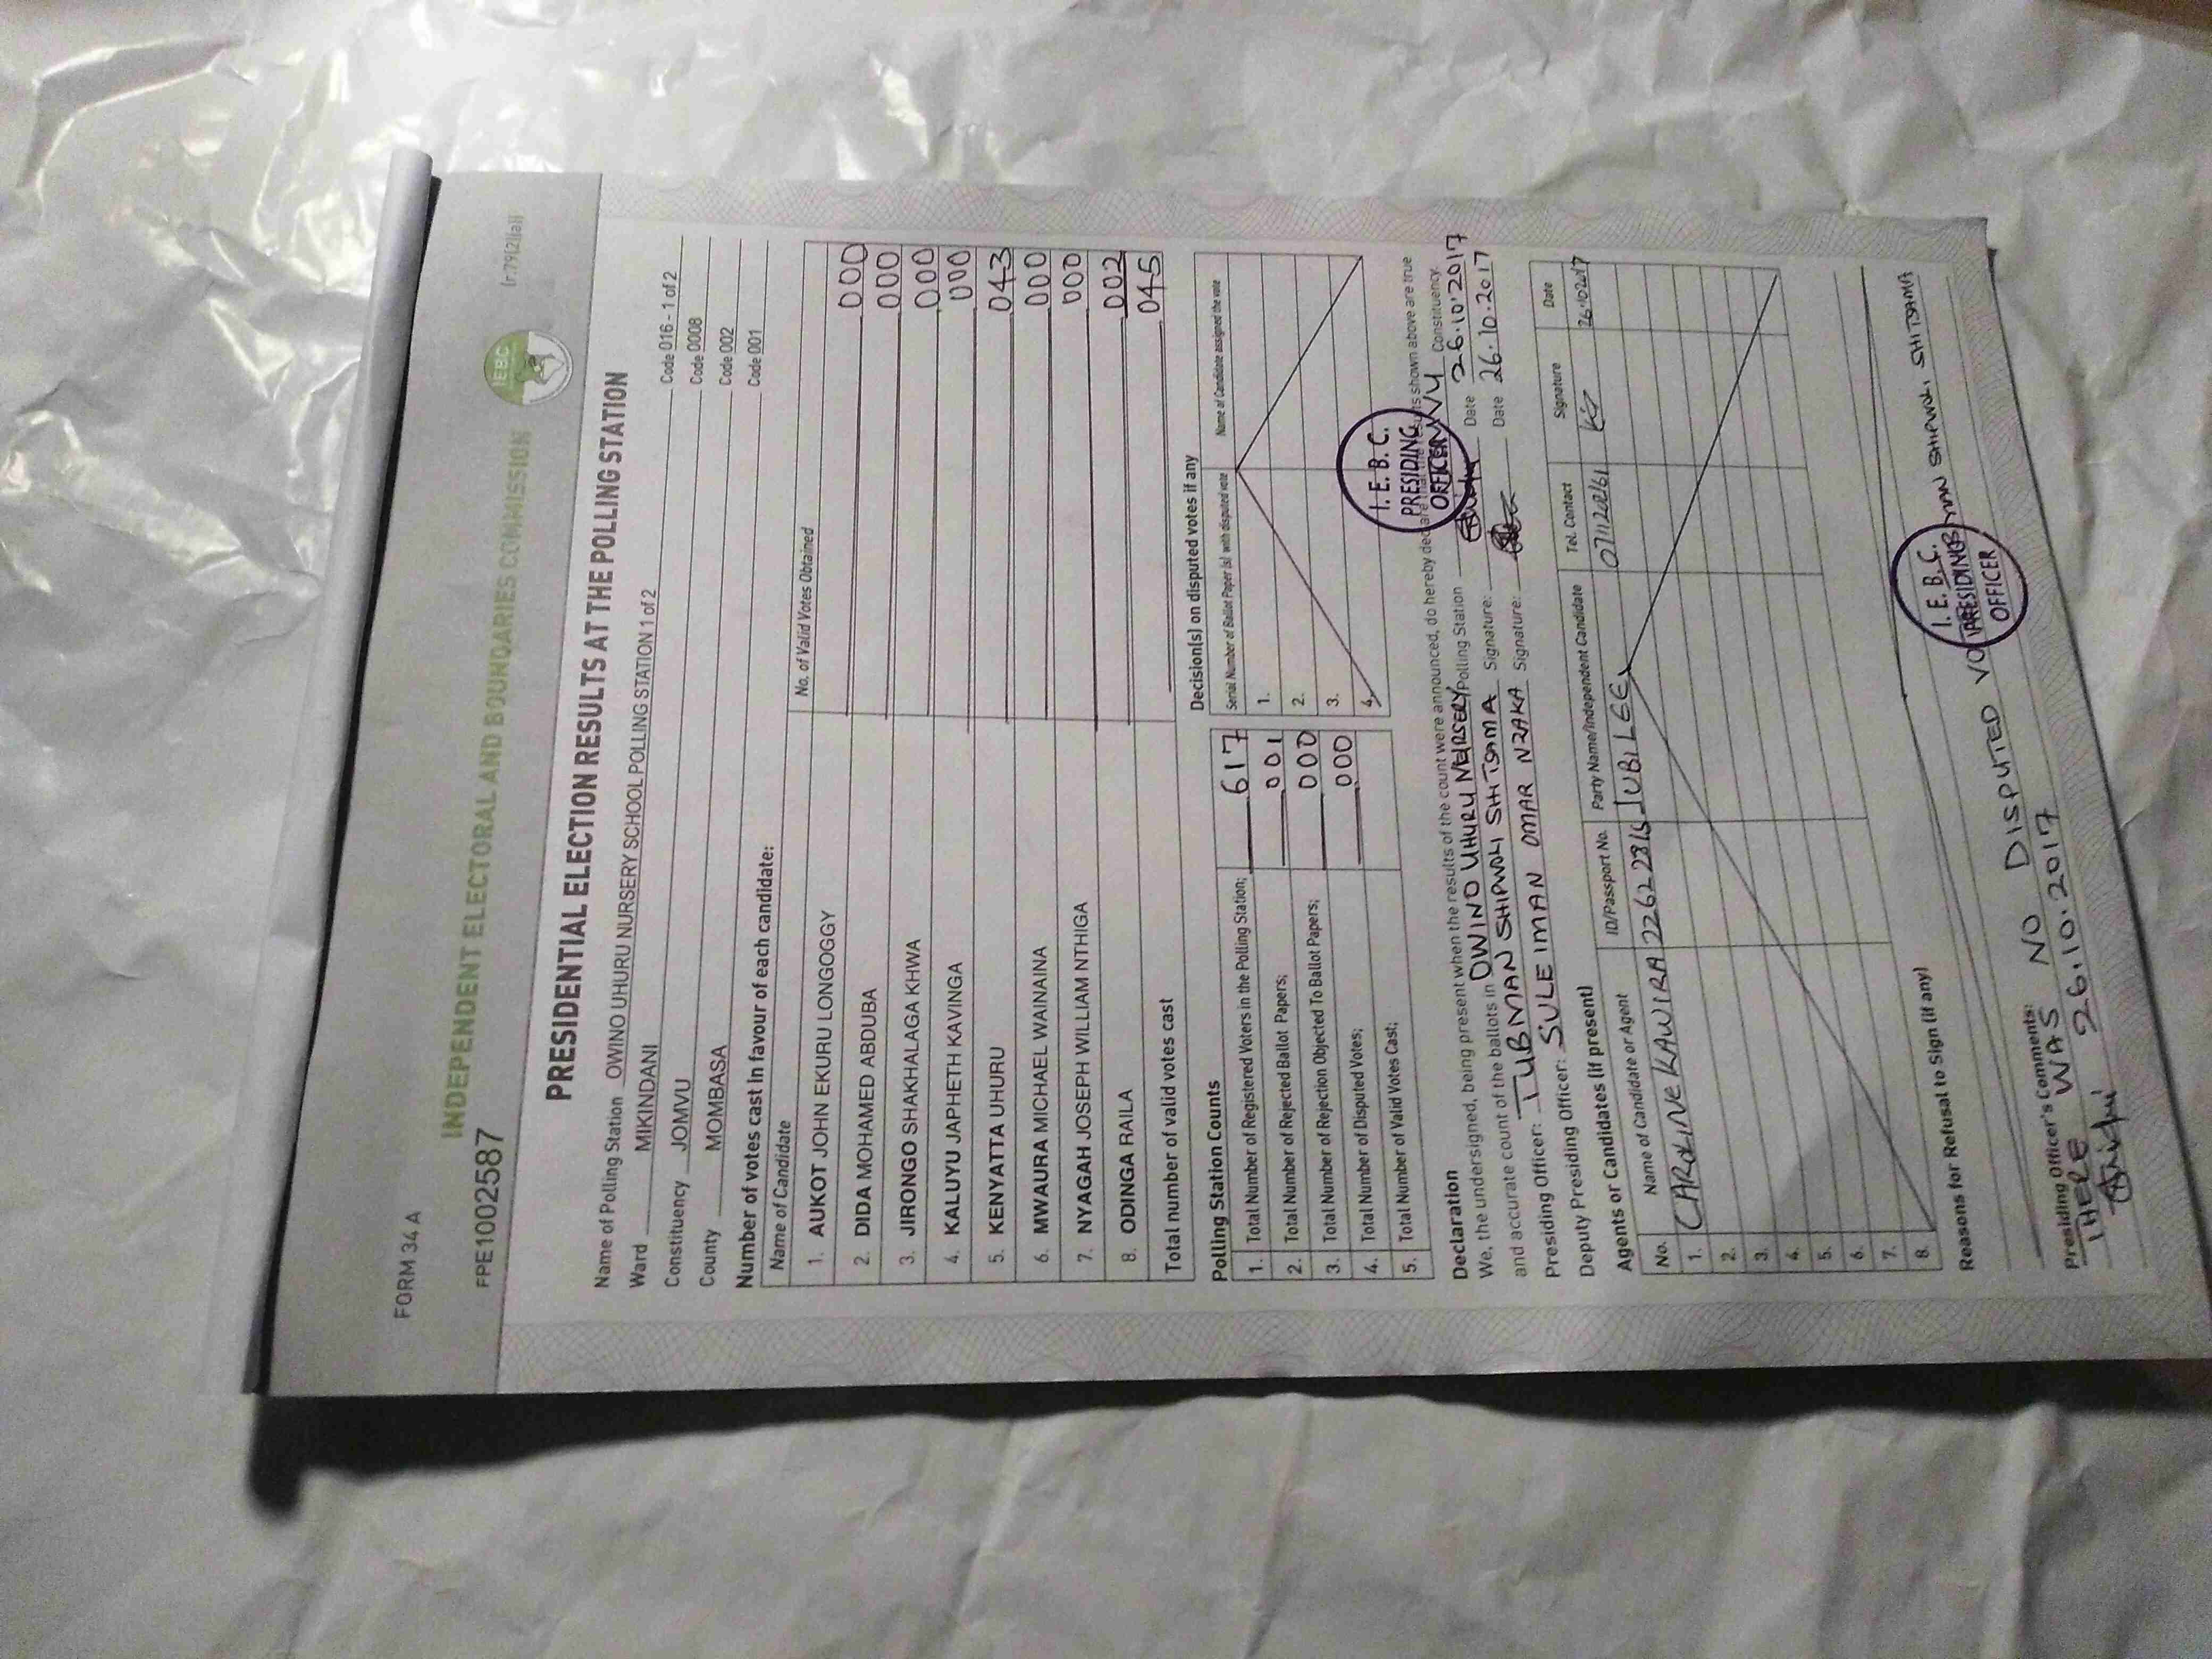 FORM 34 A
(r.79(2)(a))
INDEPENDENT ELECTORAL AND BOUNDARIES COMMISSION
IEBC
FPE1002587
PRESIDENTIAL ELECTION RESULTS AT THE POLLING STATION
Name of Polling Station OWINO UHURU NURSERY SCHOOL POLLING STATION 1 of 2
Ward MIKINDANI Code 016 - 1 of 2
Constituency JOMVU Code 0008
County MOMBASA Code 002
Code 001
Number of votes cast in favour of each candidate:
Name of Candidate No. of Valid Votes Obtained
1. AUKOT JOHN EKURU LONGOGGY 000
2. DIDA MOHAMED ABDUBA 000
3. JIRONGO SHAKHALAGA KHWA 000
4. KALUYU JAPHETH KAVINGA 000
5. KENYATTA UHURU 043
6. MWAURA MICHAEL WAINAINA 000
7. NYAGAH JOSEPH WILLIAM NTHIGA 000
8. ODINGA RAILA 002
Total number of valid votes cast 045
Polling Station Counts
1. Total Number of Registered Voters in the Polling Station; 617
2. Total Number of Rejected Ballot Papers; 001
3. Total Number of Rejection Objected To Ballot Papers; 000
4. Total Number of Disputed Votes; 000
5. Total Number of Valid Votes Cast;
Decision(s) on disputed votes if any
Serial Number of Ballot Paper (s) with disputed vote Name of Candidate assigned the vote
1.
2.
3.
4.
I. E. B. C.
PRESIDING
OFFICER
Declaration
We, the undersigned, being present when the results of the count were announced, do hereby declare that the results shown above are true
and accurate count of the ballots in OWINO UHURU NERSERY Polling Station Constituency.
Presiding Officer: TUBMAN SHIPWOLI SHITSAMA Signature: Date 26.10.2017
Deputy Presiding Officer: SULEIMAN OMAR NZAKA Signature: Date 26.10.2017
(if present)
Agents or Candidates
No. Name of Candidate or Agent ID/Passport No. Party Name/Independent Candidate Tel. Contact Signature Date
1. CAROLINE KAWIRA 22622816 JUBILEE 26.10.2017
2.
3.
4.
5.
6.
7.
8.
Reasons for Refusal to Sign (if any)
Presiding Officer's Comments:
THERE WAS NO DISPUTED SHIPWOLI SHITSAMA
26.10.2017
I. E. B. C.
PRESIDING
OFFICER